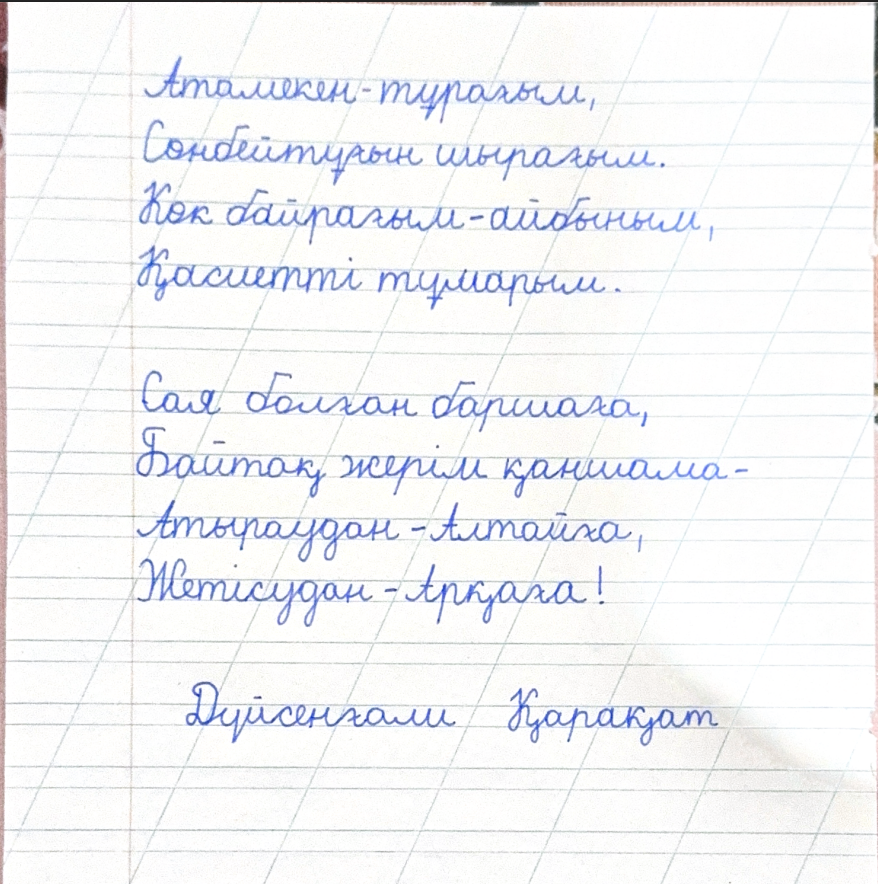 Атамекен-тұрағым,
Сөнбейтұғын шырағым.
Көк байрағым-айбыным,
Қасиетті тұмарым.
Сая болған баршаға,
Байтақ жерім қаншама-
Атыраудан-Алтайға,
Жетісудан-Арқаға!
Дүйсенғали Қарақат